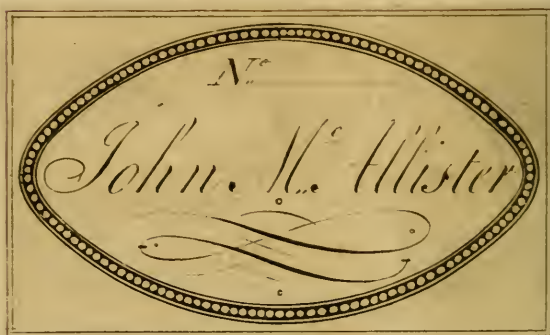 No
John Mc. Allister